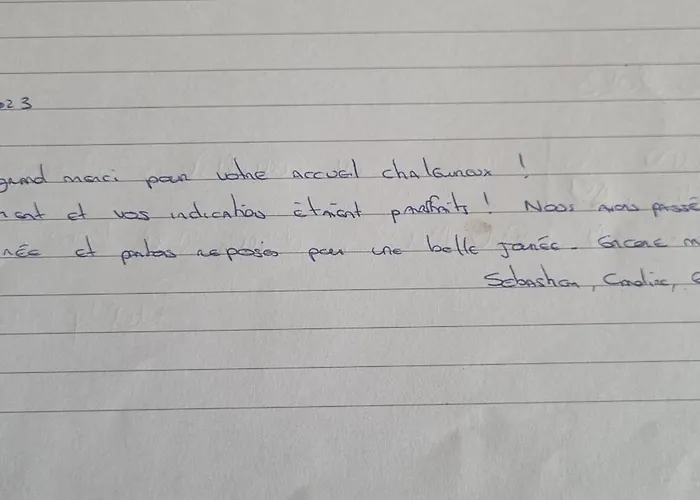 023
grand merci pour votre accueil chaleureux !
ment et vos indications étaient parfaits ! Nous avons passé
née et partons reposés pour une belle journée. Encore m
Sebastien, Coraline, G